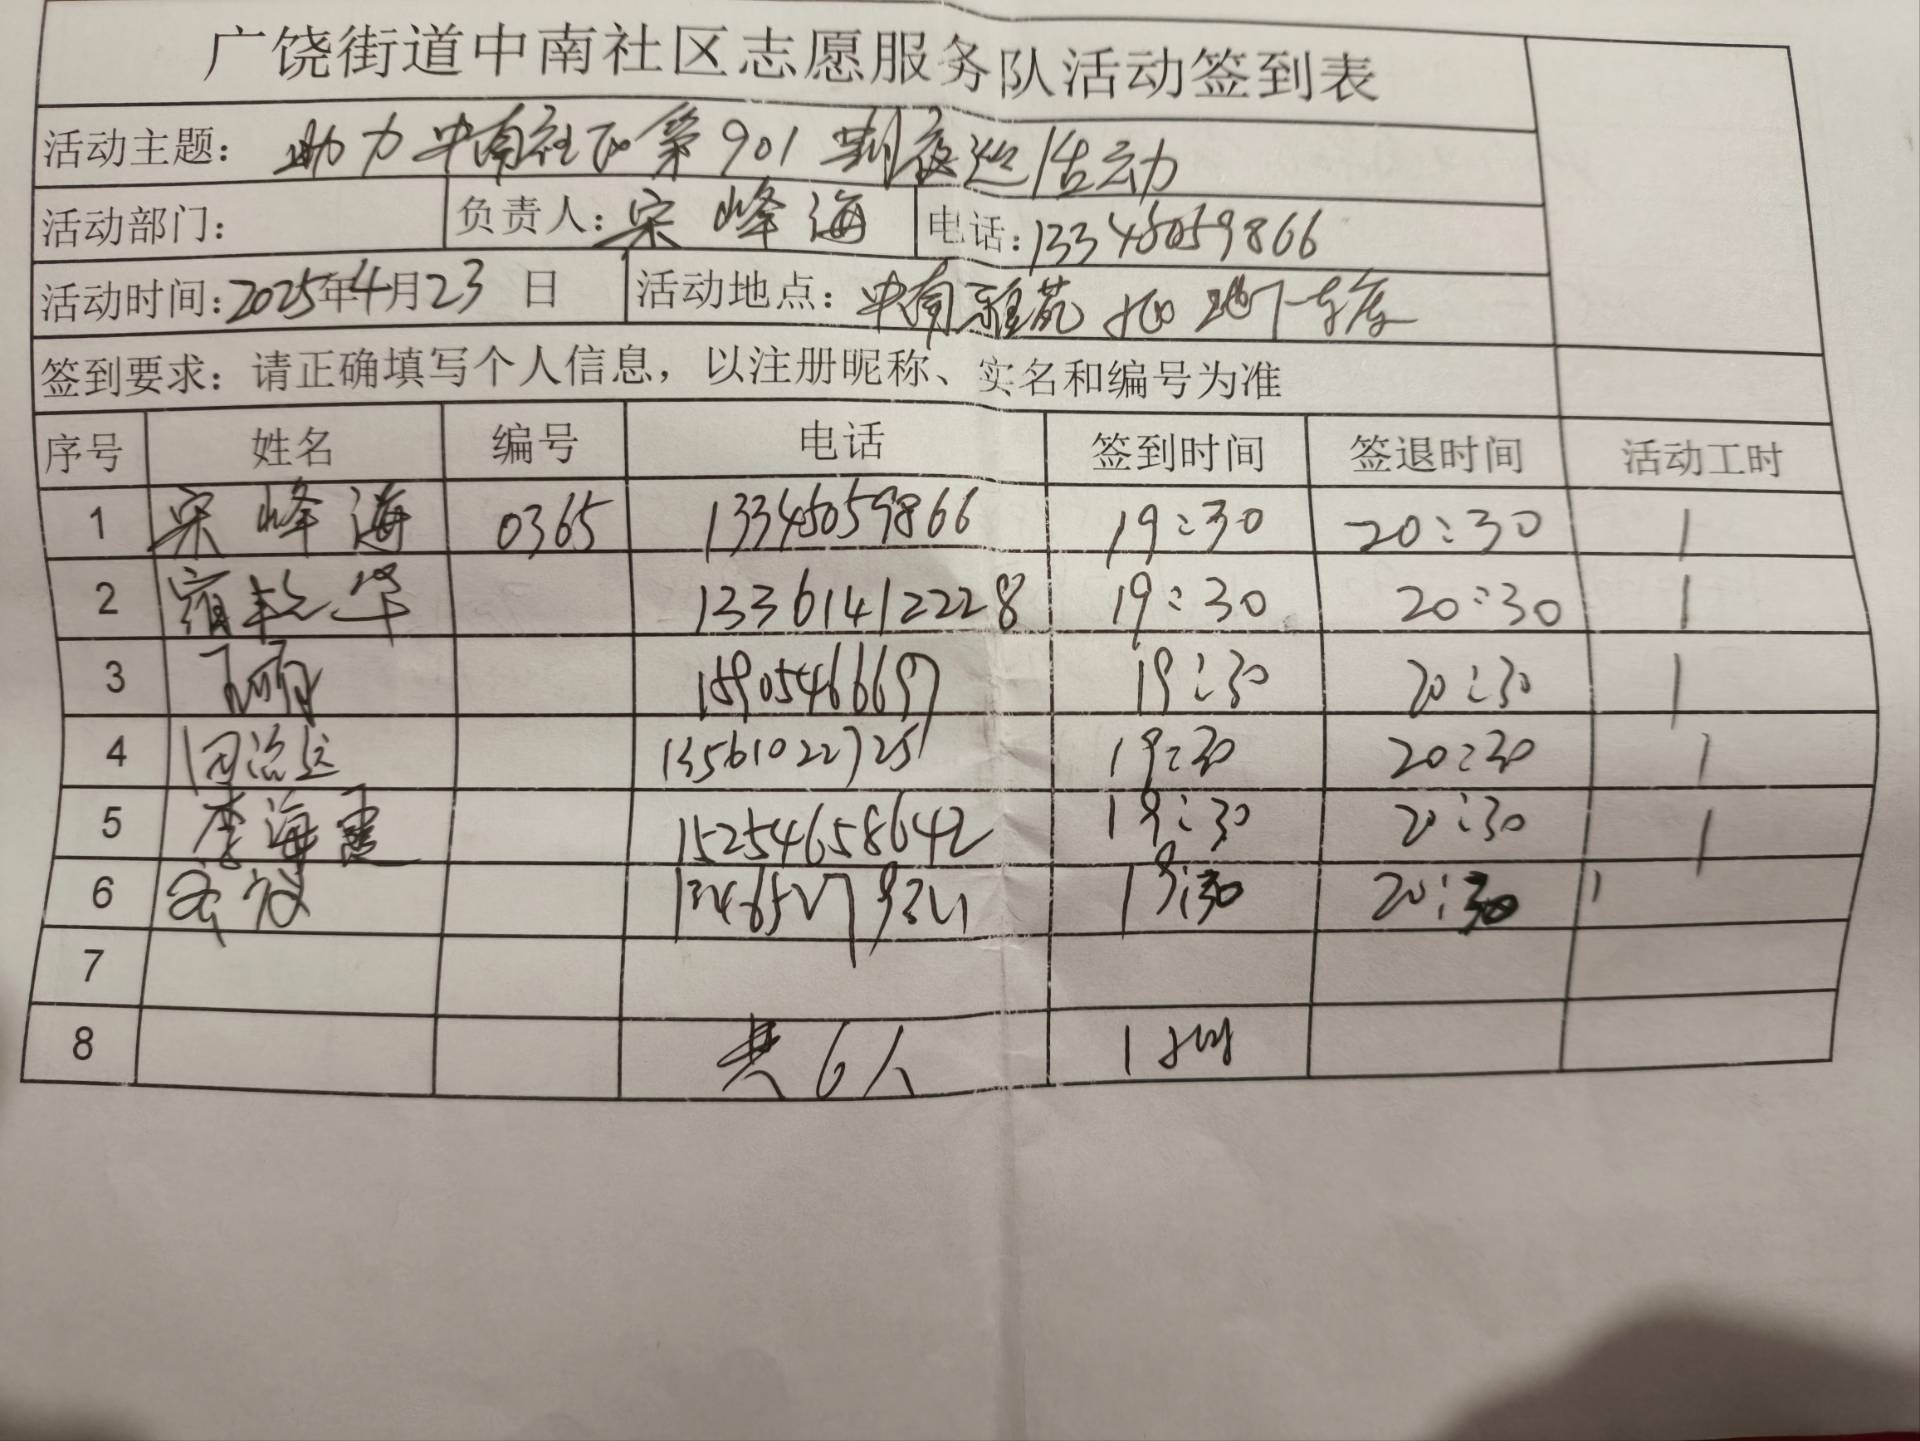 广饶街道中南社区志愿服务队活动签到表
活动主题：助力中南社区第901期夜巡活动
活动部门： 负责人：宋峰海 电话：13345059866
活动时间：2025年4月23日 活动地点：中南雅苑 地下车库
签到要求：请正确填写个人信息，以注册昵称、实名和编号为准
序号 姓名 编号 电话 签到时间 签退时间 活动工时
1 宋峰海 0365 13345059866 19:30 20:30 1
2 华 13361412228 19:30 20:30 1
3 15905466697 19:30 20:30 1
4 13561022725 19:30 20:30 1
5 李海霞 15254658642 19:30 20:30 1
6 19:30 20:30 1
7
8 共6人 1小时